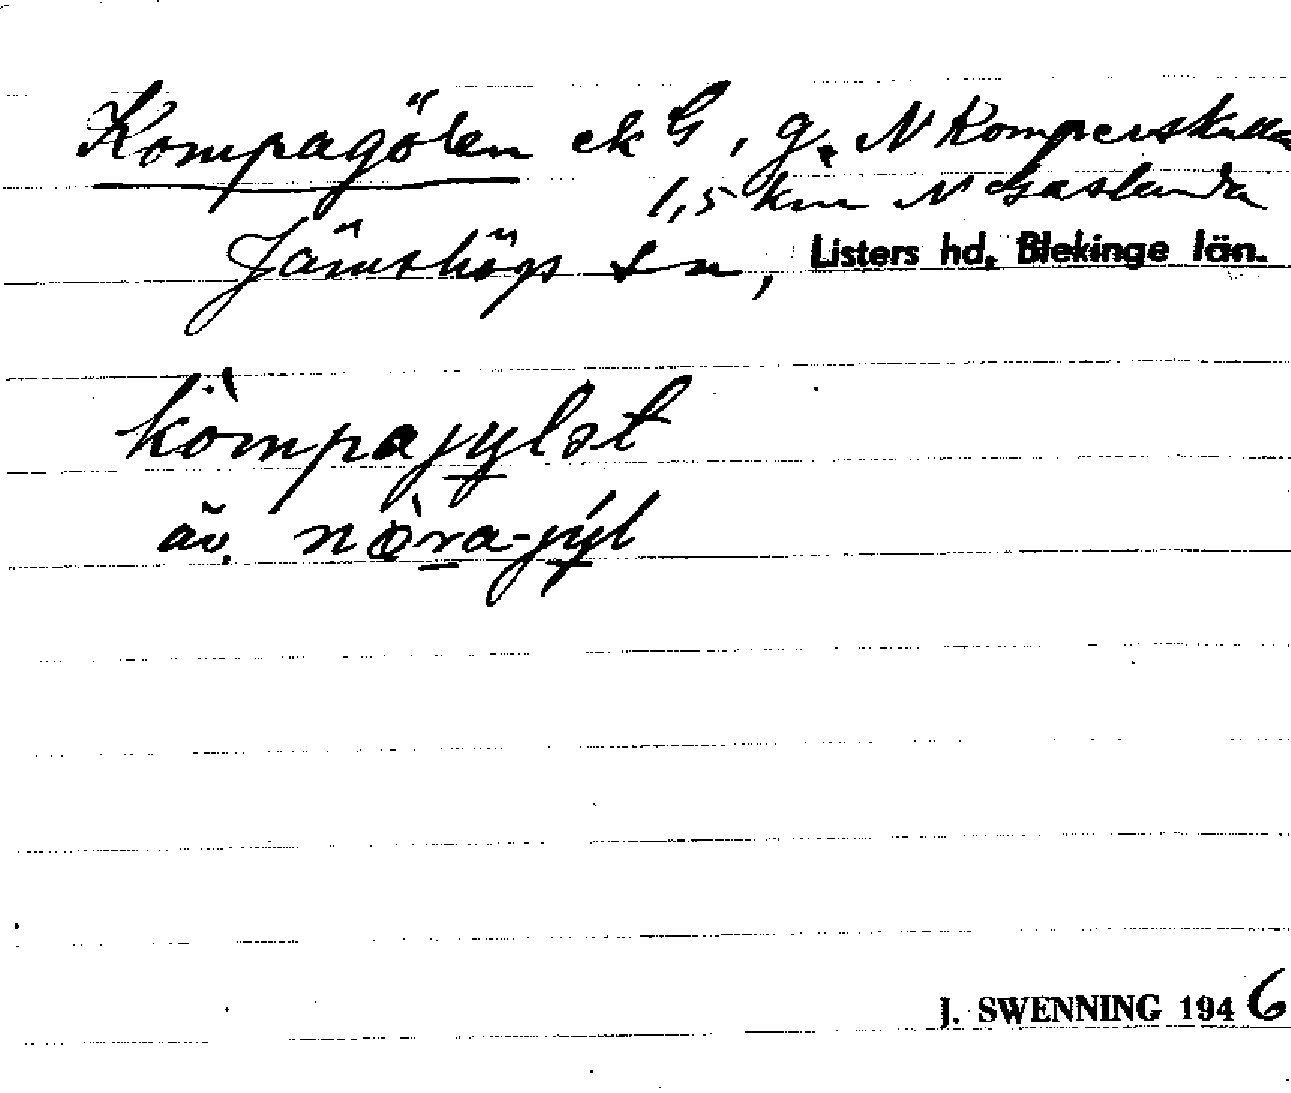 Kompagölen ek G, g. N Komperskulla
1,5 km N Gaslanda
Jämshögs sn, Listers hd, Blekinge län.
kòmpajylət
äv. nòra-jýl
J. SWENNING 1946